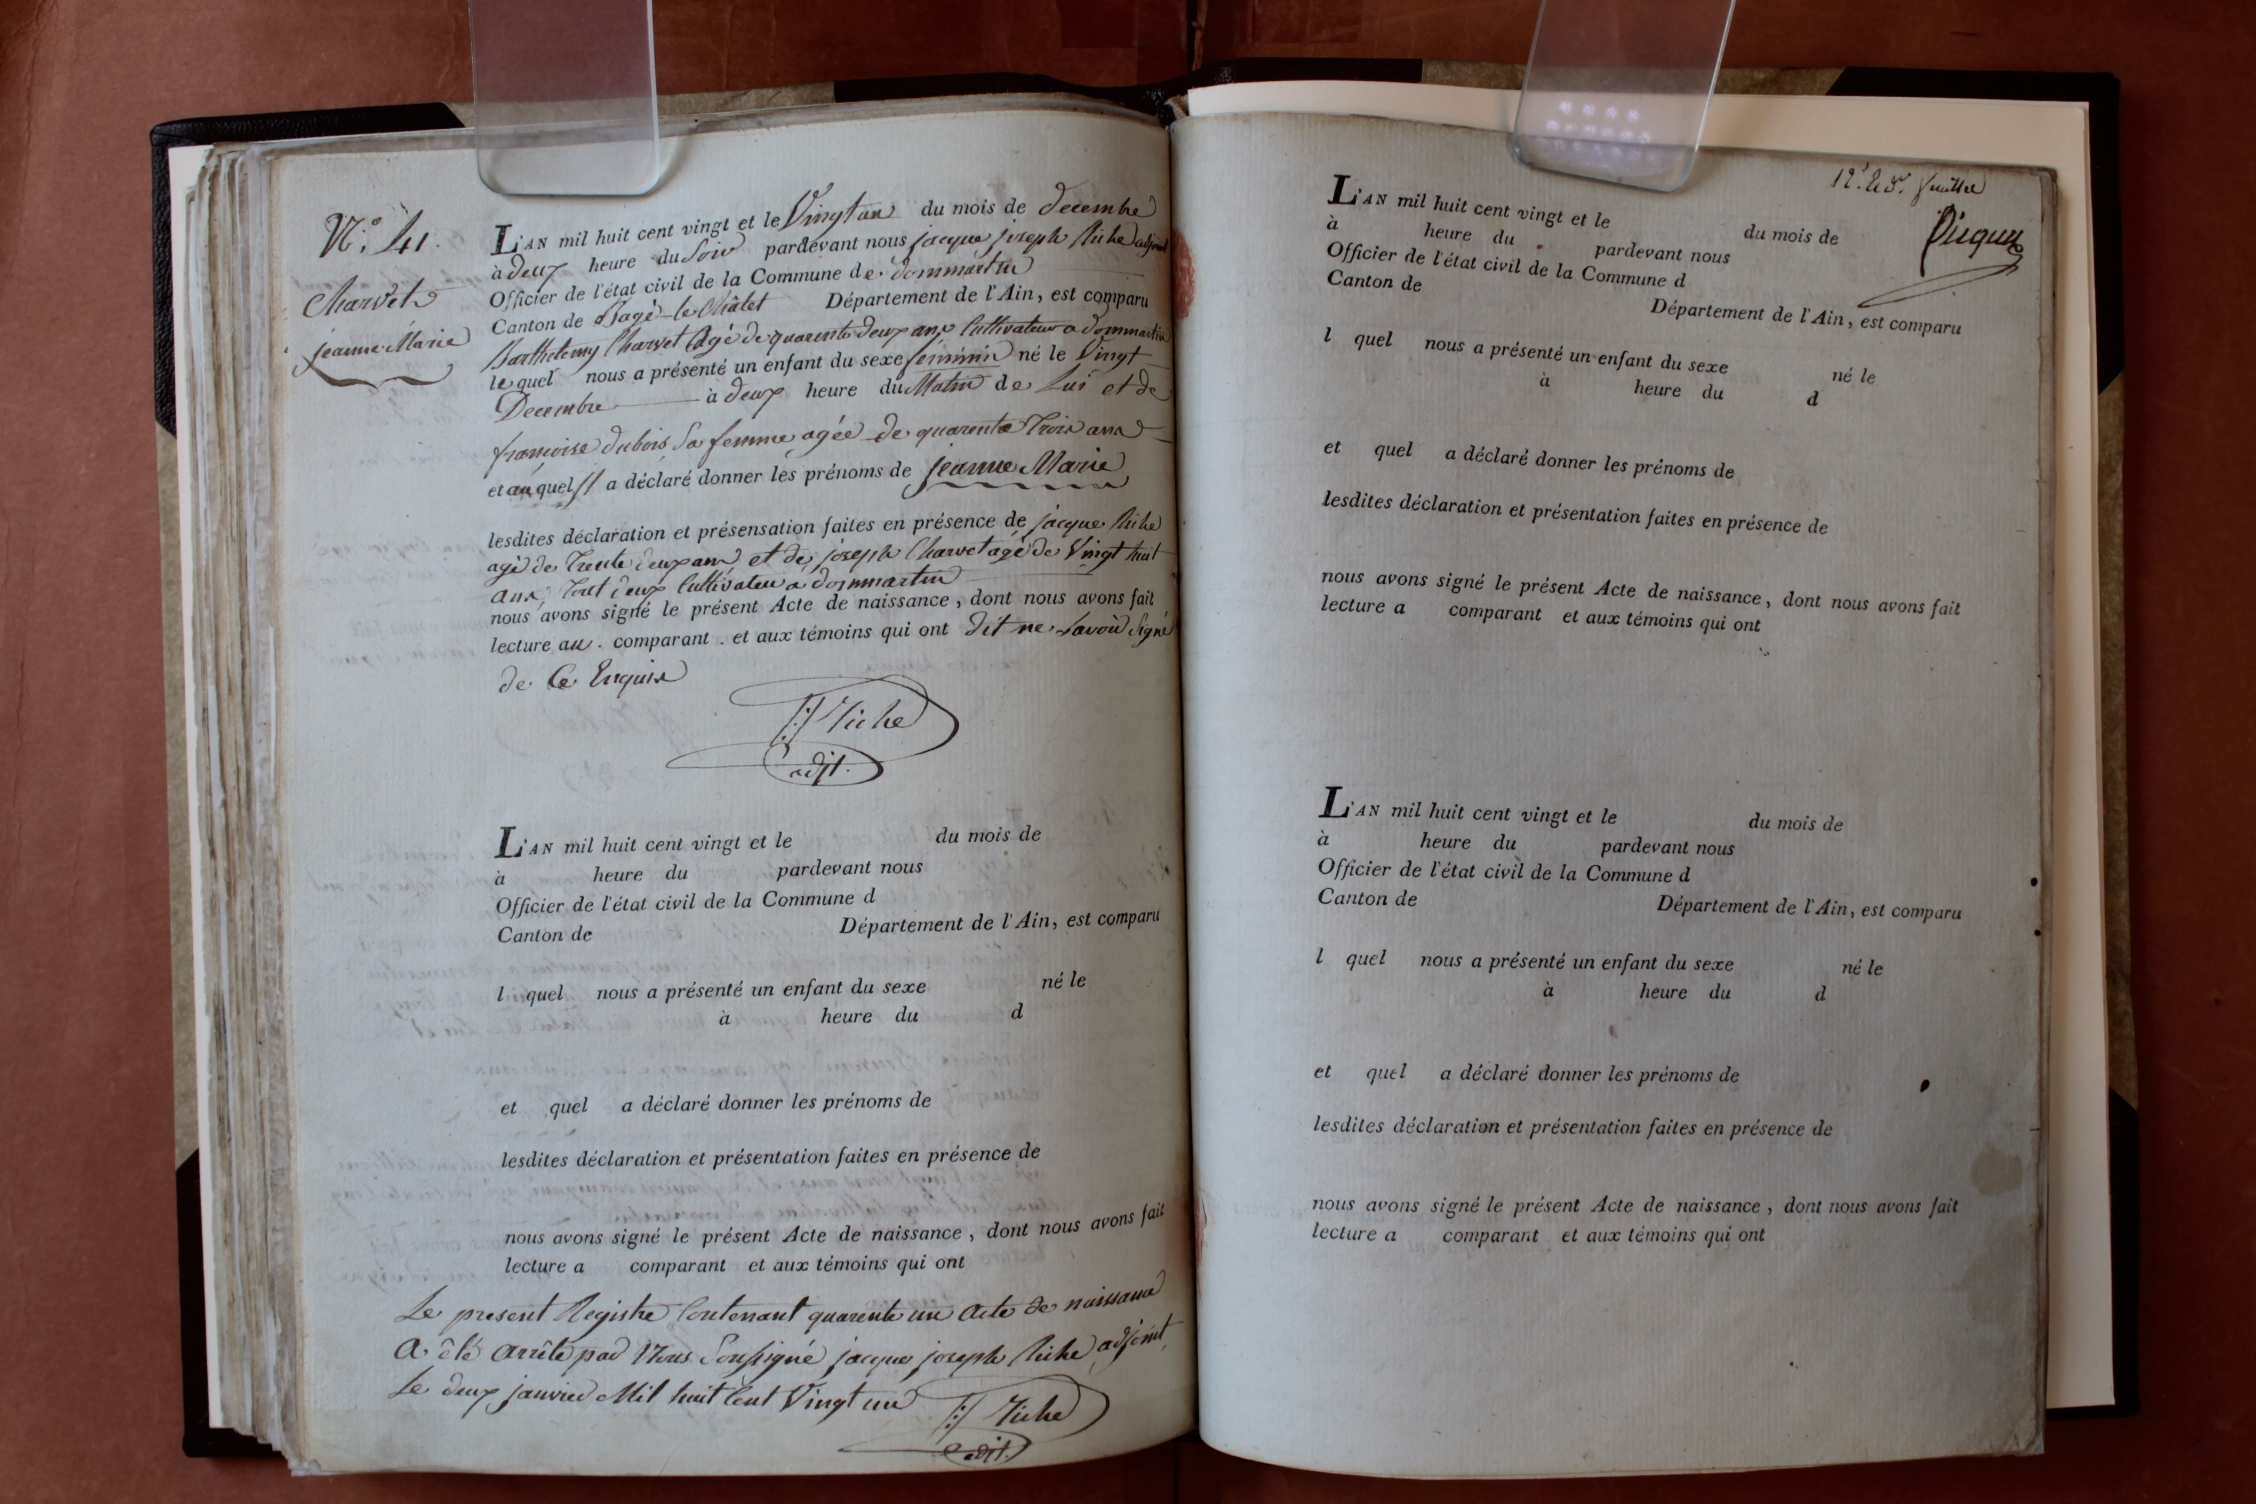 N.° 41.
Charvet
jeanne Marie
L'AN mil huit cent vingt et le Vingt un du mois de decembre
à deux heure du Soir pardevant nous jacque joseph Riche adjoint
Officier de l'état civil de la Commune de dommartin
Canton de Bagé-le-Châtel Département de l'Ain, est comparu
Barthelemy Charvet Agé de quarente deux ans Cultivateur a dommartin
lequel nous a présenté un enfant du sexe feminin né le Vingt
Decembre à deux heure du Matin de Lui et de
francoise dubois Sa femme agée de quarente Trois ans
et auquel il a déclaré donner les prénoms de jeanne Marie
lesdites déclaration et présensation faites en présence de jacque Riche
agé de Trente deux ans et de joseph Charvet agé de Vingt huit
ans, Tout deux Cultivateu a dommartin
nous avons signé le présent Acte de naissance, dont nous avons fait
lecture au comparant et aux témoins qui ont dit ne Savoir Signé
de Ce Enquis
Riche
adjt.
L'AN mil huit cent vingt et le du mois de
à heure du pardevant nous
Officier de l'état civil de la Commune d
Canton de Département de l'Ain, est comparu
l quel nous a présenté un enfant du sexe né le
à heure du d
et quel a déclaré donner les prénoms de
lesdites déclaration et présentation faites en présence de
nous avons signé le présent Acte de naissance, dont nous avons fait
lecture a comparant et aux témoins qui ont
Le present Registre Contenant quarente un acte de naissance
A été arrêté par Nous Soussigné jacque joseph Riche adjoint,
Le deux janvier Mil huit Cent Vingt un
Riche
adjt.
feuillet
L'AN mil huit cent vingt et le du mois de
à heure du pardevant nous
Officier de l'état civil de la Commune d
Canton de Département de l'Ain, est comparu
l quel nous a présenté un enfant du sexe né le
à heure du d
et quel a déclaré donner les prénoms de
lesdites déclaration et présentation faites en présence de
nous avons signé le présent Acte de naissance, dont nous avons fait
lecture a comparant et aux témoins qui ont
L'AN mil huit cent vingt et le du mois de
à heure du pardevant nous
Officier de l'état civil de la Commune d
Canton de Département de l'Ain, est comparu
l quel nous a présenté un enfant du sexe né le
à heure du d
et quel a déclaré donner les prénoms de
lesdites déclaration et présentation faites en présence de
nous avons signé le présent Acte de naissance, dont nous avons fait
lecture a comparant et aux témoins qui ont